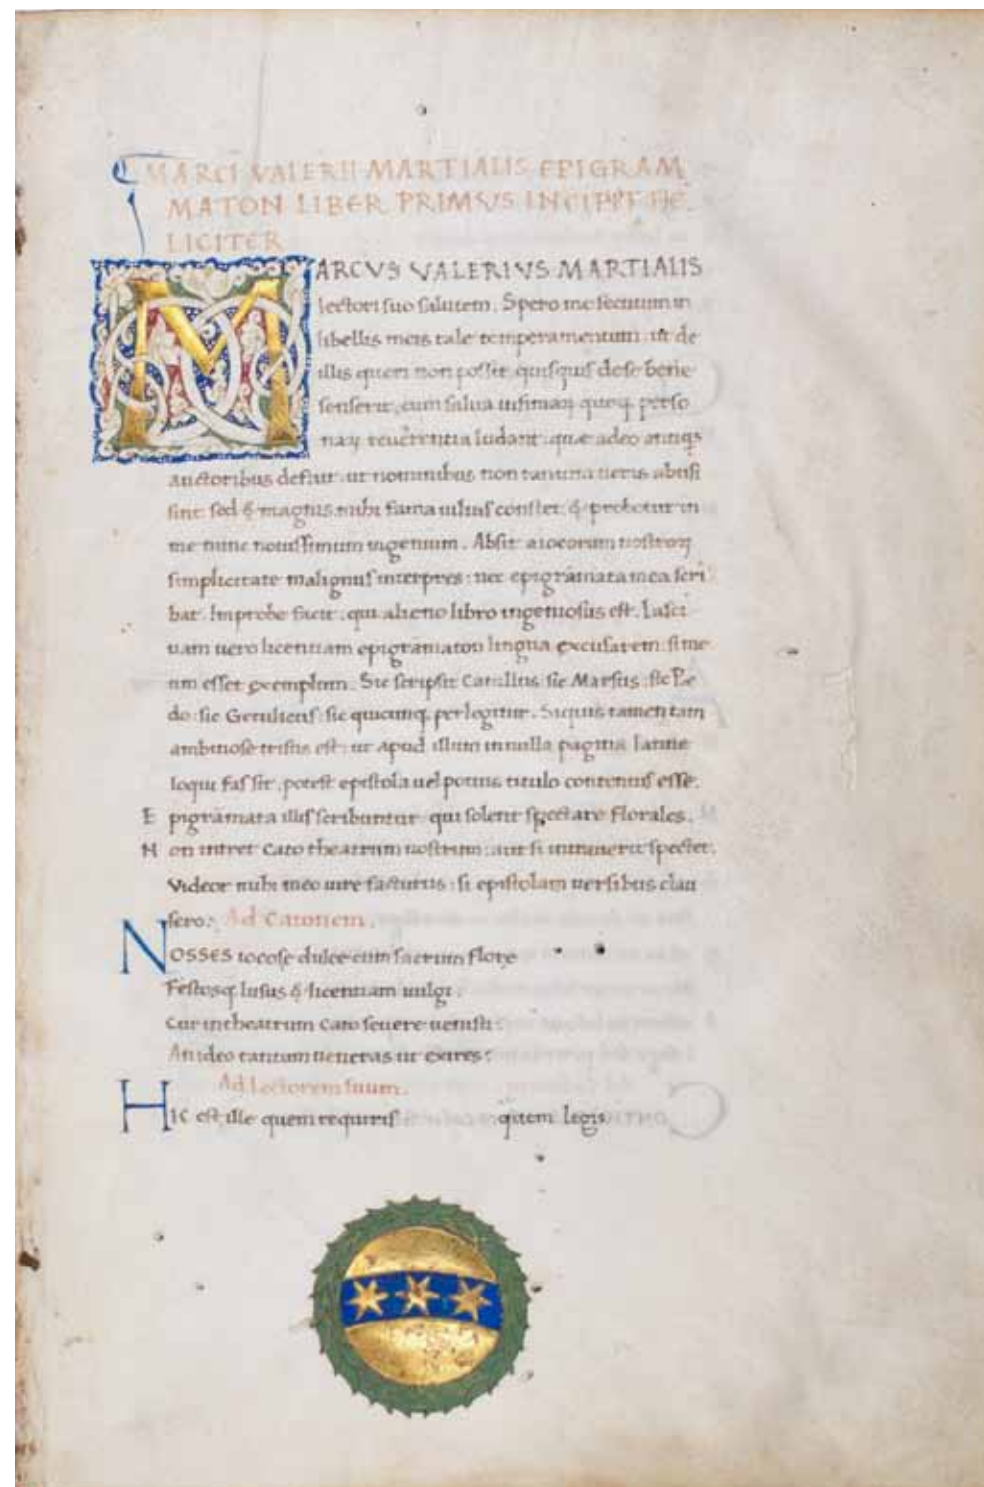 MARCI VALERII MARTIALIS EPIGRAM
MATON LIBER PRIMVS INCIPIT FE
LICITER
MARCVS VALERIVS MARTIALIS
lectori suo salutem. Spero me secutum in
libellis meis tale temperamentum: ut de
illis queri non possit quisquis de se bene
senserit, cum salua infimaꝝ quoqꝫ perso
naꝝ reuerentia ludant: quae adeo antiqs
auctoribus defuit: ut nominibus non tantum ueris abusi
sint: sed & magnis. mihi fama uilius constet: & probetur in
me nunc nouissimum ingenium. Absit a iocorum nostroꝝ
simplicitate malignus interpres: nec epigrāmata mea scri
bat. Improbe facit: qui alieno libro ingeniosus est. Lasci
uam uero licentiam epigrāmaton lingua excusarem: si me
um esset exemplum. Sic scripsit Catullus: sic Marsus: sic Pe
do: sic Getulicus: sic quicunqꝫ perlegitur. Siquis tamen tam
ambitiose tristis est: ut apud illum in nulla pagina latine
loqui fas sit. potest epistola uel potius titulo contentus esse.
E pigrāmata illis scribuntur qui solent spectare florales.
N on intret Cato theatrum nostrum: aut si intrauerit spectet.
Videor mihi meo iure facturus: si epistolam uersibus clau
sero. Ad Catonem.
NOSSES iocose dulce cum sacrum florę
Festosqꝫ lusus & licentiam uulgi:
Cur in theatrum Cato seuere uenisti:
An ideo tantum ueneras ut exires:
Ad Lectorem suum.
HIC est ille quem requiris quem legis